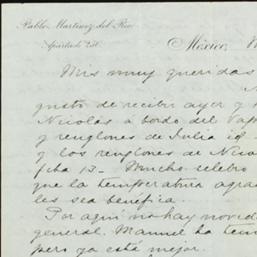 Pablo Martínez del Río
Apartado 251.
México,
Mis muy queridas
gusto de recibir ayer y
Nicolás a bordo del Vap
y renglones de Julia 18
y los renglones de Nico
fcha 13 - Mucho celebro
que la temperatura agra
les sea benéfica.
Por aquí no hay noved
general. Manuel ha teni
pero ya está mejor.